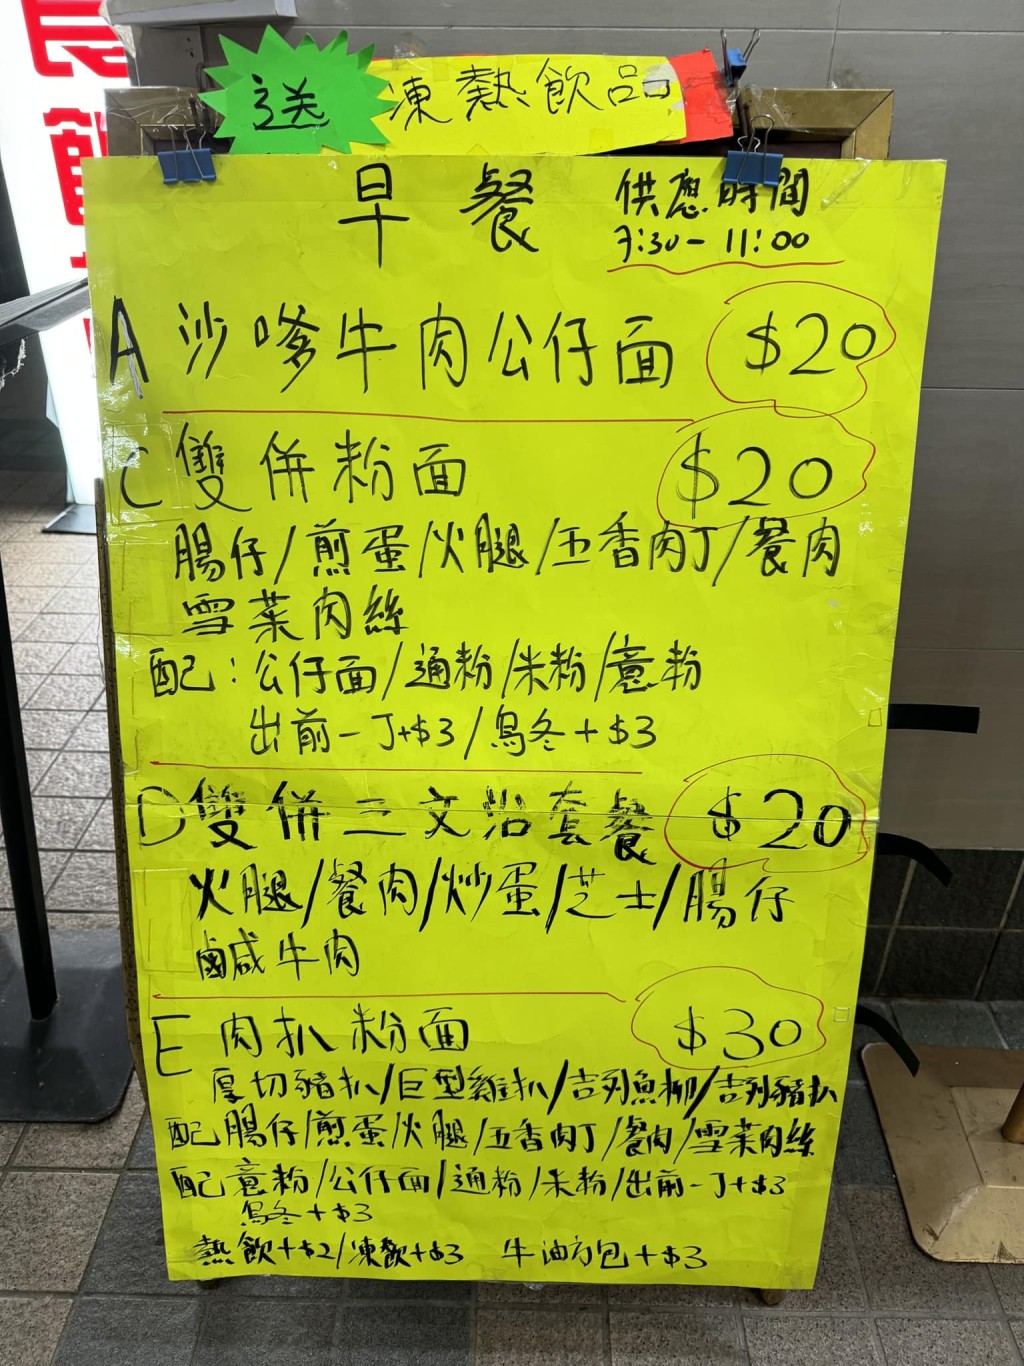 送 凍熱飲品
早餐 供應時間
7:30-11:00
A 沙嗲牛肉公仔面 $20
C 雙併粉面 $20
腸仔/煎蛋/火腿/五香肉丁/餐肉
雪菜肉絲
配:公仔面/通粉/米粉/意粉
出前一丁+$3/烏冬+$3
D 雙併三文治套餐 $20
火腿/餐肉/炒蛋/芝士/腸仔
鹹牛肉
E 肉扒粉面 $30
厚切豬扒/巨型雞扒/吉列魚柳/吉列豬扒
配腸仔/煎蛋/火腿/五香肉丁/餐肉/雪菜肉絲
配意粉/公仔面/通粉/米粉/出前一丁+$3
烏冬+$3
熱飲+$2/凍飲+$3 牛油方包+$3